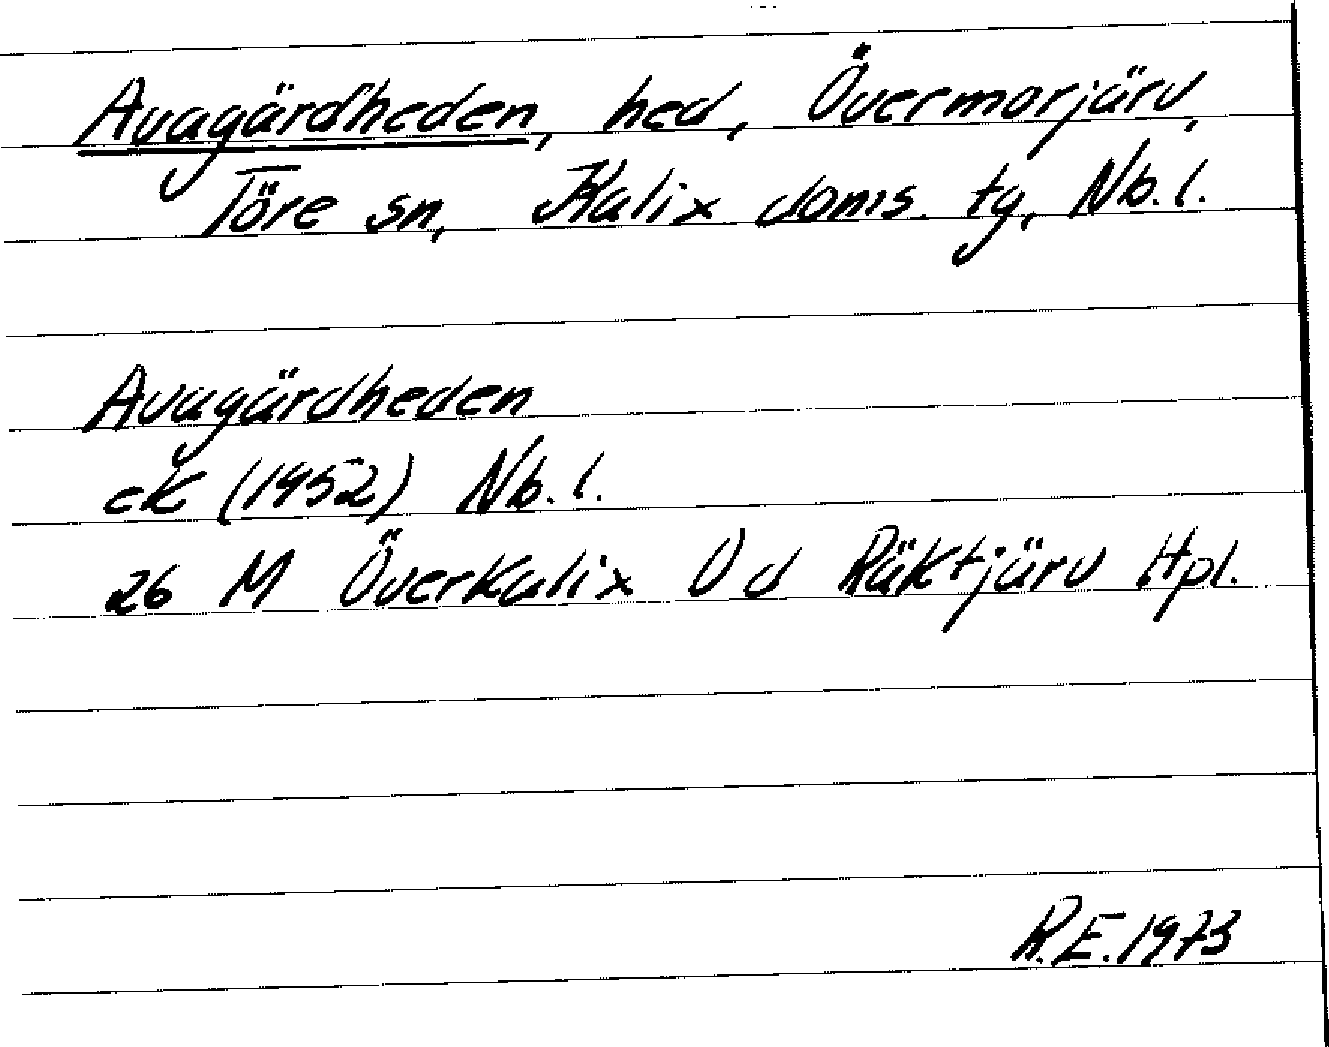 Avagärdheden, hed, Övermorjärv,
Töre sn, Kalix doms. tg, Nb.l.
Avagärdheden
ek (1952) Nb.l.
26 M Överkalix Od Räktjärv Hpl.
R.E. 1973